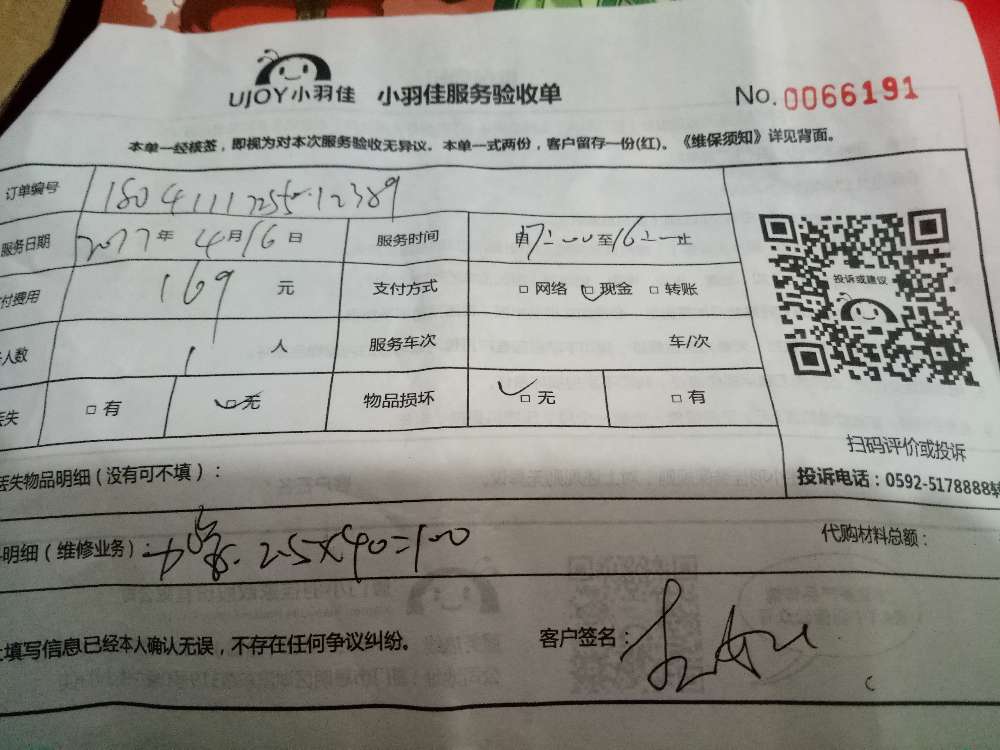 UJOY小羽佳 小羽佳服务验收单 No.0066191
本单一经核签，即视为对本次服务验收无异议。本单一式两份，客户留存一份(红)。《维保须知》详见背面。
订单编号
服务日期 2017年4月16日 服务时间 至 止
付费用 169 元 支付方式 □网络 □现金 □转账
人数 1 人 服务车次 车/次
丢失 □有 □无 物品损坏 □无 □有
投诉或建议
扫码评价或投诉
投诉电话：0592-5178888转
丢失物品明细（没有可不填）：
明细（维修业务）： 2.5×40=100 代购材料总额：
填写信息已经本人确认无误，不存在任何争议纠纷。 客户签名：